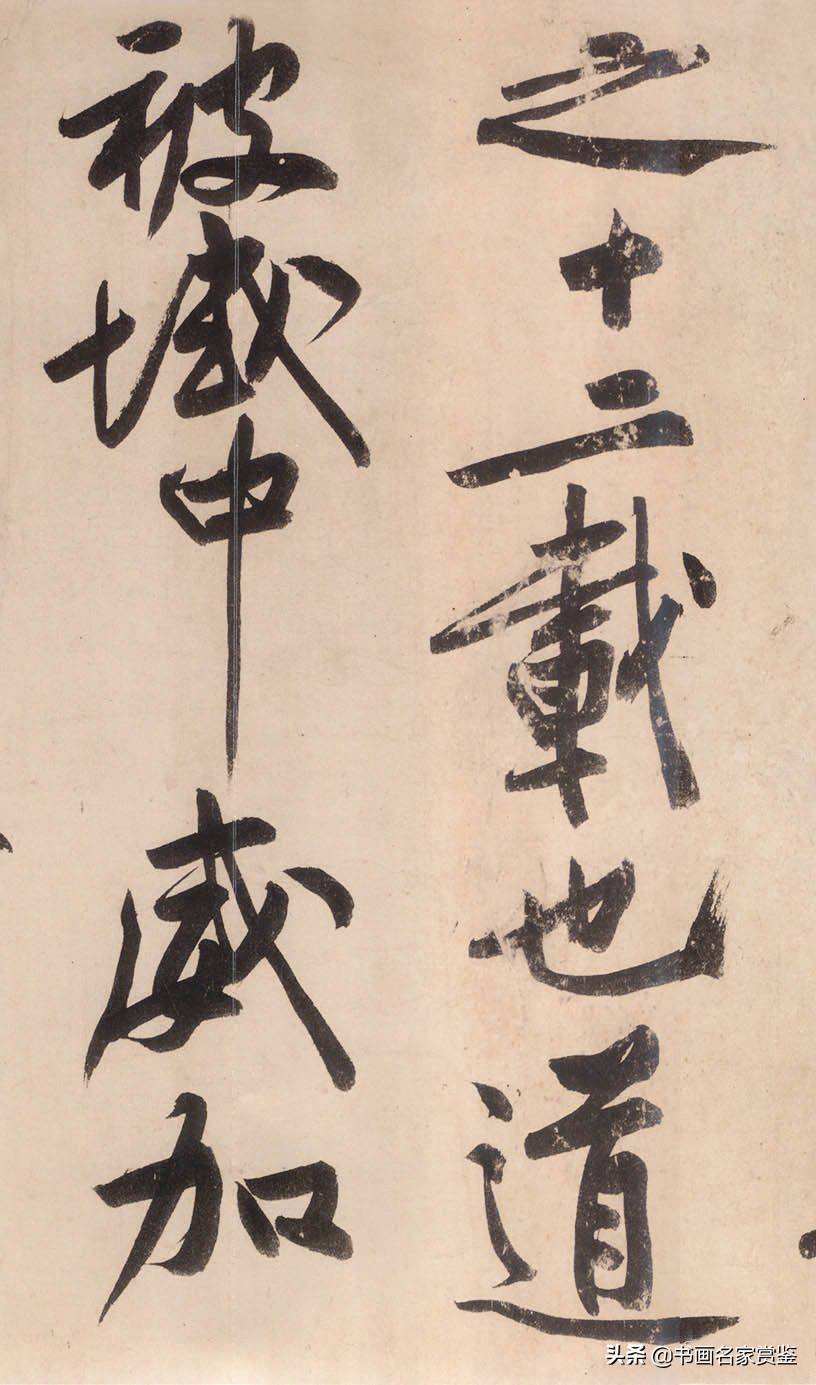 之十二載也道
被域中威加
头条 @书画名家赏鉴